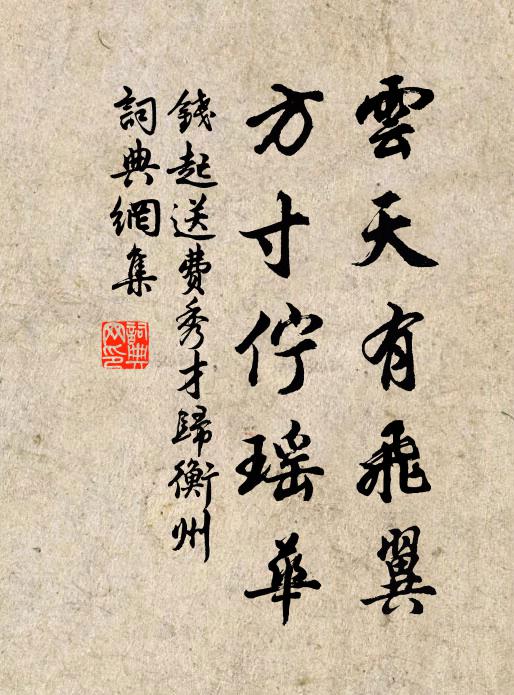 雲天有飛翼
方寸佇瑶華
錢起送費秀才歸衡州
詞典網集
詞典網印